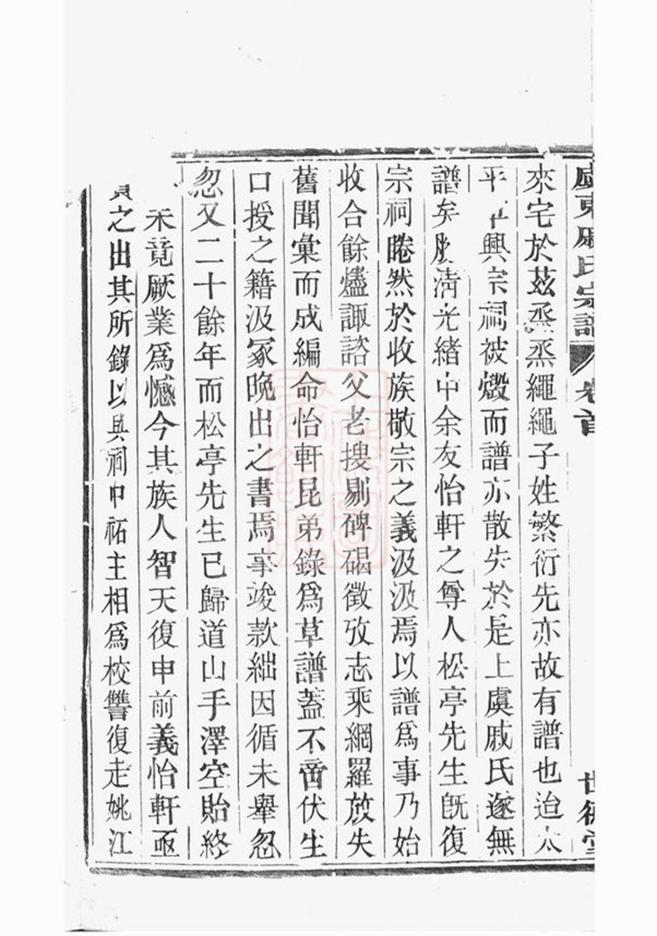 虞東戚氏宗譜 卷首 世德堂
來宅於茲烝烝繩繩子姓繁衍先亦故有譜也迨太
平 興宗祠被燬而譜亦散失於是上虞戚氏遂無
譜矣 清光緒中余友怡軒之尊人松亭先生旣復
宗祠睠然於收族敬宗之義汲汲焉以譜爲事乃始
收合餘燼諏諮父老搜剔碑碣徵攷志乘網羅放失
舊聞彙而成編命怡軒昆弟錄爲草譜蓋不啻伏生
口授之籍汲冢晚出之書焉事竣款絀因循未舉忽
忽又二十餘年而松亭先生已歸道山手澤空貽終
未竟厥業爲憾今其族人智天復申前義怡軒亟
之出其所錄以與祠中祏主相爲校讐復走姚江